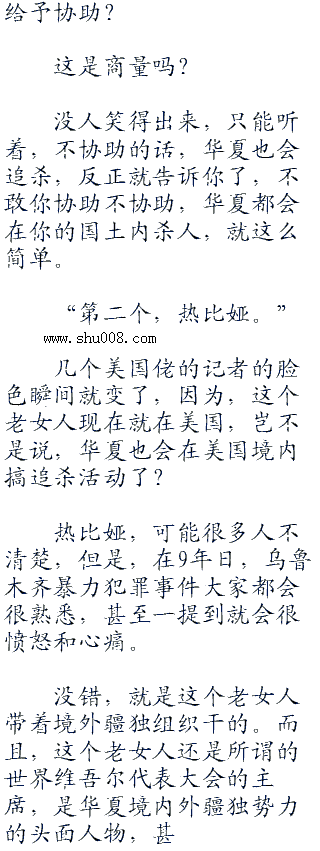 给予协助？
这是商量吗？
没人笑得出来，只能听
着，不协助的话，华夏也会
追杀，反正就告诉你了，不
敢你协助不协助，华夏都会
在你的国土内杀人，就这么
简单。
“第二个，热比娅。”
www.shu008.com
几个美国佬的记者的脸
色瞬间就变了，因为，这个
老女人现在就在美国，岂不
是说，华夏也会在美国境内
搞追杀活动了？
热比娅，可能很多人不
清楚，但是，在9年日，乌鲁
木齐暴力犯罪事件大家都会
很熟悉，甚至一提到就会很
愤怒和心痛。
没错，就是这个老女人
带着境外疆独组织干的。而
且，这个老女人还是所谓的
世界维吾尔代表大会的主
席，是华夏境内外疆独势力
的头面人物，甚